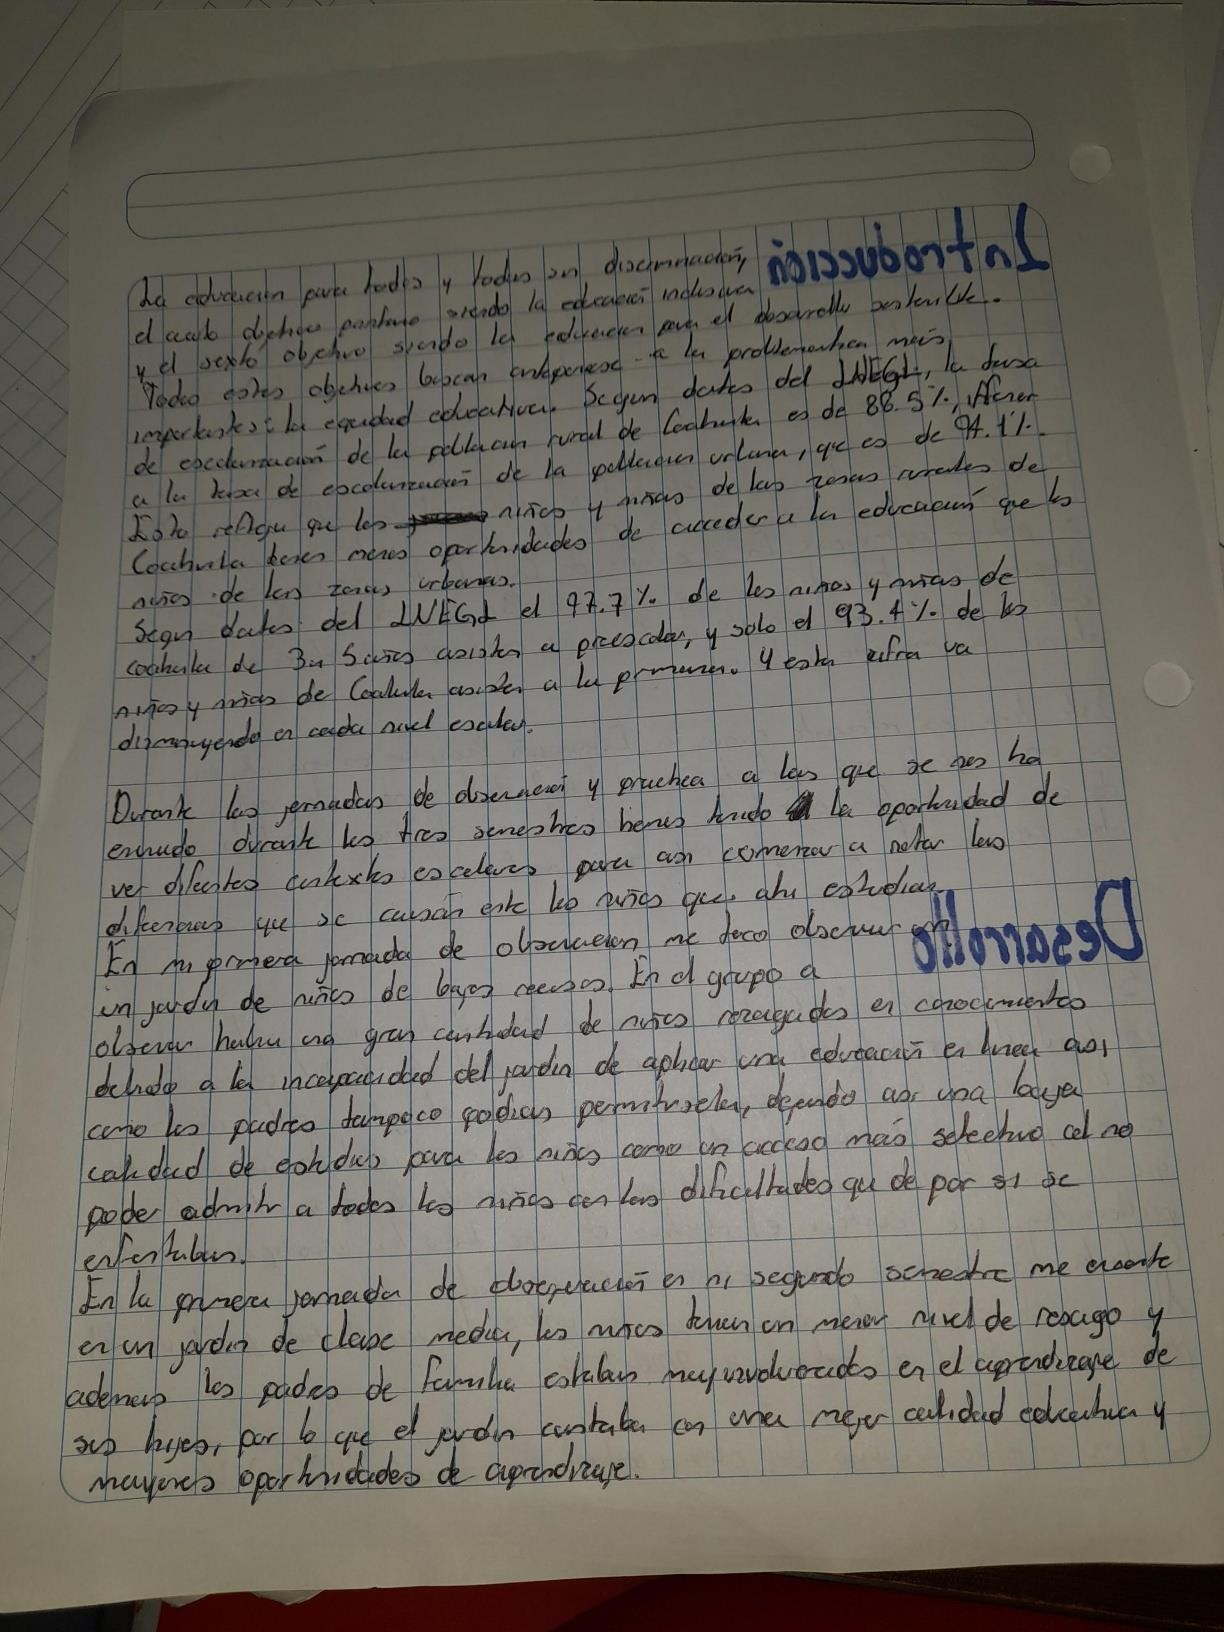 La educación para todos y todas sin discriminación,
el cuarto objetivo siendo la educación inclusiva
y el sexto objetivo siendo la educación para el desarrollo sostenible.
Todos estos objetivos buscan a la problematica más
importante: la equidad educativa. Segun datos del INEGI, la tasa
de escolarización de la población rural de Coahuila es de 88.5%, inferior
a la tasa de escolarización de la población urbana, que es de 94.1%.
Esto refleja que los niños y niñas de las zonas rurales de
Coahuila tienen menos oportunidades de acceder a la educación que los
niños de las zonas urbanas.
Segun datos del INEGI el 97.7% de los niños y niñas de
coahuila de 3 a 5 años asisten a preescolar, y solo el 93.4% de los
niños y niñas de Coahuila asisten a la primaria. Y esta cifra va
disminuyendo en cada nivel escolar.
Durante las jornadas de observación y practica a las que se nos ha
enviado durante los tres semestres hemos tenido la oportunidad de
ver diferentes contextos escolares para asi comenzar a notar las
diferencias que se causan ente los niños que ahi estudian
En mi primera jornada de observacion me toco observar en
un jardin de niños de bajos recursos. En el grupo a
observar habia una gran cantidad de niños rezagados en conocimientos
debido a la incapacidad del jardin de aplicar una educación en linea asi
como los padres tampoco podian permitirsela, dejando asi una baja
calidad de estudios para los niños como un acceso más selectivo al no
poder admitir a todos los niños con las dificultades que de por si se
enfrentaban.
En la primera jornada de observación en mi segundo semestre me encontre
en un jardin de clase media, los niños tenian un menor nivel de resago y
ademas los padres de familia estaban muy involucrados en el aprendizaje de
sus hijos, por lo que el jardin contaba con una mejor calidad educativa y
mayores oportunidades de aprendizaje.
Introducción
Desarrollo